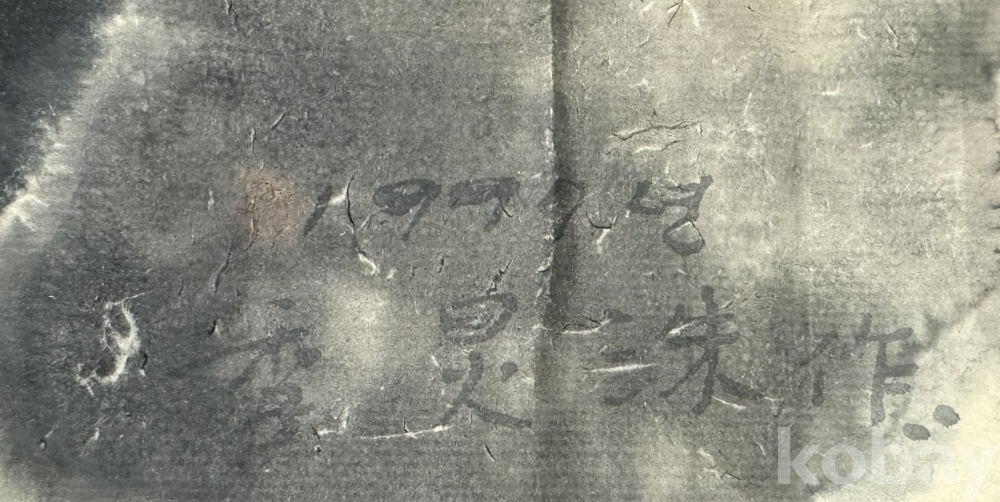 1997년
炅 珠 作
kobay